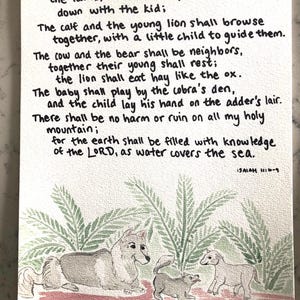 down with the kid;
The calf and the young lion shall browse
together, with a little child to guide them.
The cow and the bear shall be neighbors,
together their young shall rest;
the lion shall eat hay like the ox.
The baby shall play by the cobra's den,
and the child lay his hand on the adder's lair.
There shall be no harm or ruin on all my holy
mountain;
for the earth shall be filled with knowledge
of the LORD, as water covers the sea.